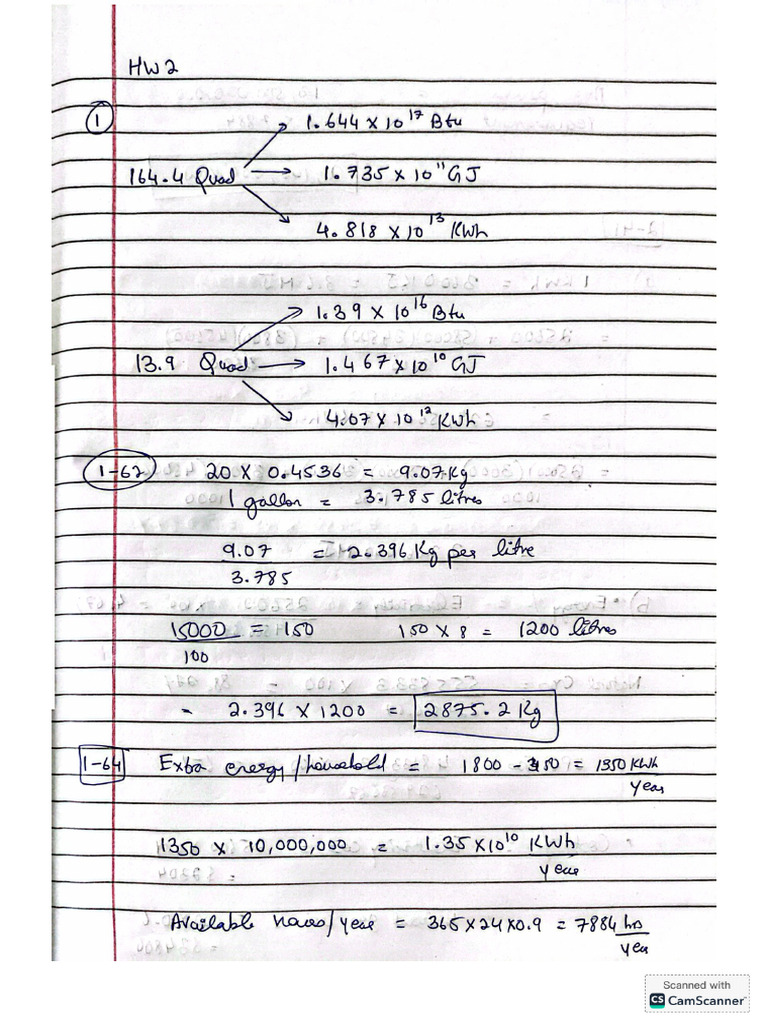 HW2
1
1.644 x 10^17 Btu
164.4 Quad → 1.735 x 10^11 GJ
4.818 x 10^13 KWh
1.39 x 10^16 Btu
13.9 Quad → 1.467 x 10^10 GJ
4.07 x 10^12 KWh
1-62 20 x 0.4536 = 9.07 Kg
1 gallon = 3.785 litres
9.07 = 2.396 Kg per litre
3.785
15000 = 150 150 x 8 = 1200 litres
100
= 2.396 x 1200 = 2875.2 Kg
1-64 Extra energy/household = 1800 - 450 = 1350 KWh
year
1350 x 10,000,000 = 1.35 x 10^10 KWh
year
Available hours/year = 365 x 24 x 0.9 = 7884 hrs
year
Scanned with
CS CamScanner